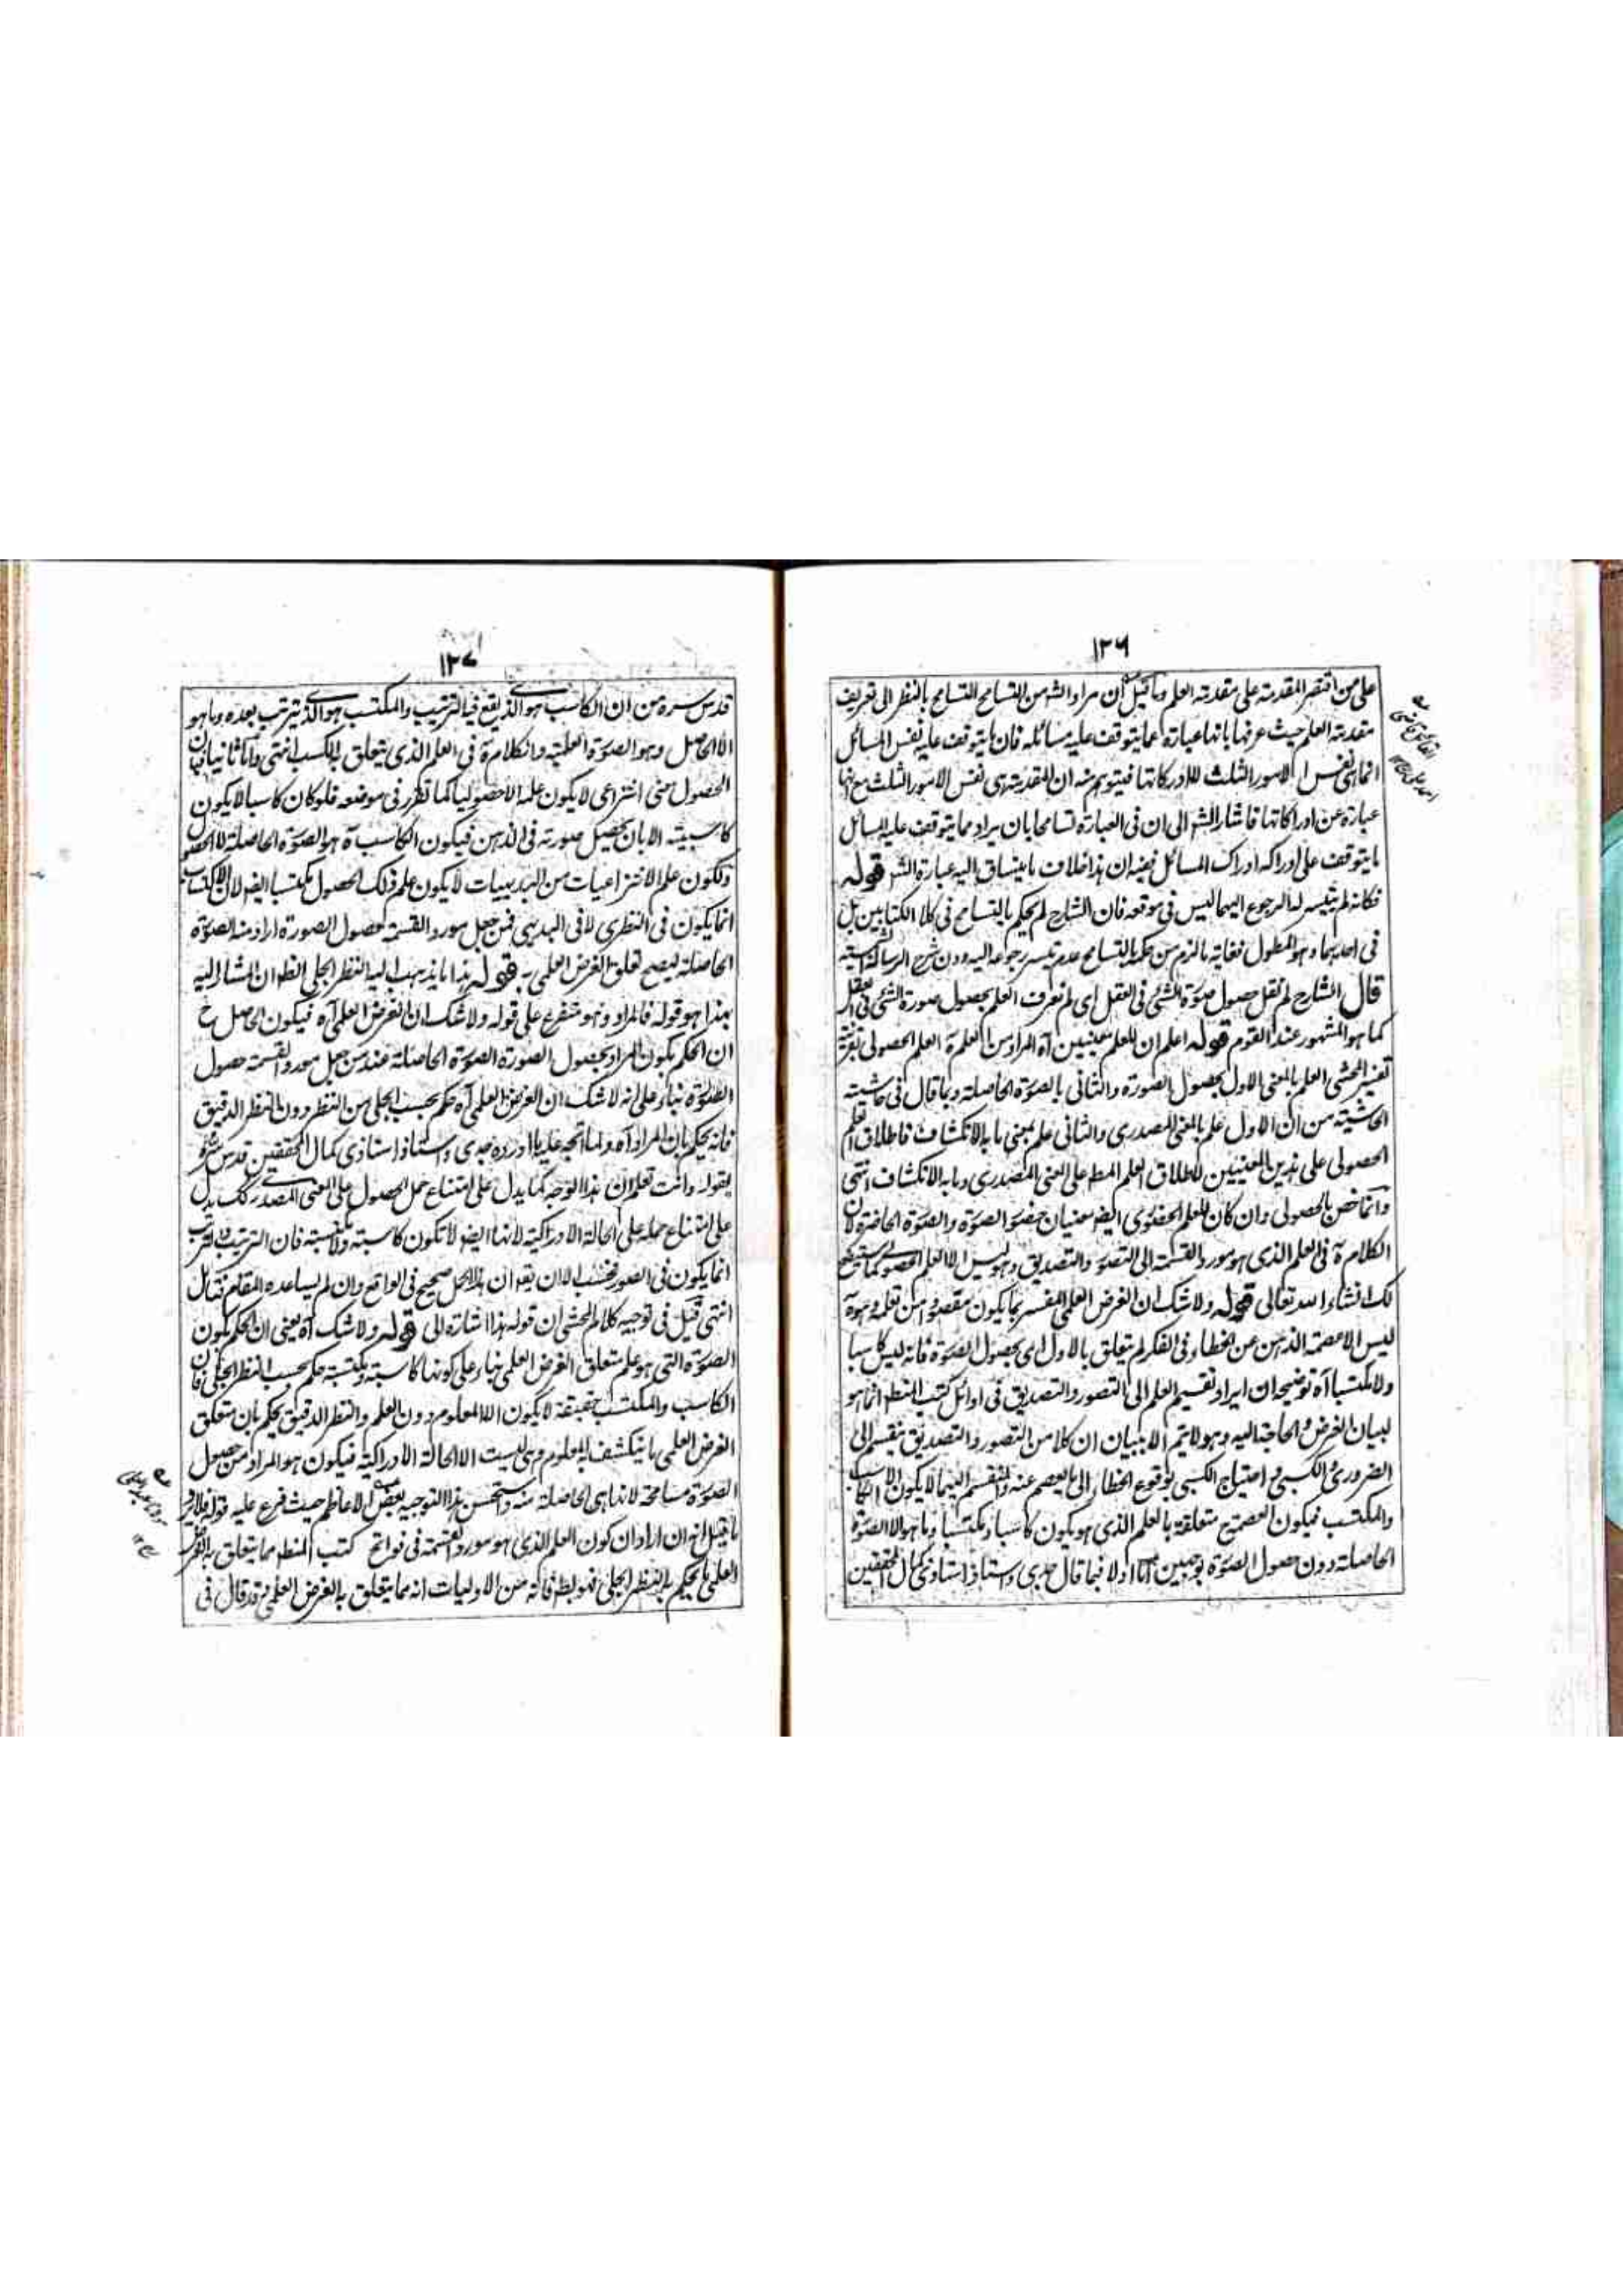 ١٢٦
على من اقتصر المقدمة على مقدمة العلم وما قيل ان مراد الشه من التسامح التسامح بالنظر الى تعريف
مقدمة العلم حيث عرفها بانها عبارة عما يتوقف عليه مسائله فان ما يتوقف عليه نفس المسائل
انما هى نفس الامور الثلث لا ادراكاتها فيتوهم منه ان المقدمة هى نفس الامور الثلث مع انها
عبارة عن ادراكاتها فاشار الشه الى ان فى العبارة تسامحا بان يراد مما يتوقف عليه المسائل
ما يتوقف على ادراكه ادراك المسائل ففيه ان هذا خلاف ما ينساق اليه عبارة الشه قوله
فكانه لم يتيسر له الرجوع اليهما ليس فى موقعه فان الشارح لم يحكم بالتسامح فى كلا الكتابين بل
فى احدهما وهو المطول فغاية ما لزم من حكمه بالتسامح عدم تيسر رجوعه اليه دون شرح الرسالة الشمسية
قال الشارح لم نقل حصول صورة الشئ فى العقل اى لم نعرف العلم بحصول صورة الشئ فى العقل
كما هو المشهور عند القوم قوله اعلم ان للعلم معنيين آه المراد من العلم هٓ العلم الحصولى بقرينة
تفسير المحشى العلم بالمعنى الاول بحصول الصورة والثانى بالصورة الحاصلة وبما قال فى حاشية
الحاشية من ان الاول علم بالمعنى المصدرى والثانى علم بمعنى ما به الانكشاف فاطلاق العلم
الحصولى على هذين المعنيين كاطلاق العلم المط على المعنى المصدرى وما به الانكشاف انتهى
وانما خص بالحصولى وان كان للعلم الحضورى ايضا معنيان حضور الصورة والصورة الحاضرة لان
الكلام هٓ فى العلم الذى هو مورد القسمة الى التصور والتصديق وهو ليس الا العلم الحصولى كما سيتضح
لك انشاء الله تعالى قوله ولا شك ان الغرض العلمى المفسر بما يكون مقصودا من تعلمه وهو هٓ
ليس الا عصمة الذهن عن الخطاء فى الفكر لم يتعلق بالاول اى بحصول الصورة فانه ليس كاسبا
ولا مكتسبا آه توضيحه ان ايراد تقسيم العلم الى التصور والتصديق فى اوائل كتب المنط انما هو
لبيان الغرض والحاجة اليه وهو لا يتم الا ببيان ان كلا من التصور والتصديق ينقسم الى
الضرورى والكسبى واحتياج الكسبى بوقوع الخطاء الى ما يعصم عنه والمنقسم اليهما لا يكون الا الكاسب
والمكتسب فيكون العصمة متعلقة بالعلم الذى هو يكون كاسبا ومكتسبا وما هو الا الصورة
الحاصلة دون حصول الصورة بوجهين اما اولا فبما قال جدى واستاذ استاذى كمال المحققين
١٢٧
قدس سره من ان الكاسب هو الذى يقع فيه الترتيب والمكتسب هو الذى يترتب بعده وما هو
الا الحاصل وهو الصورة العلمية والكلام هٓ فى العلم الذى يتعلق به الكسب انتهى واما ثانيا فبان
الحصول معنى انتزاعى لا يكون علمه الا حصوليا كما تقرر فى موضعه فلو كان كاسبا لا يكون
كاسبيته الا بان يحصل صورته فى الذهن فيكون الكاسب هٓ هو الصورة الحاصلة لا الحصول
ولكون علم الانتزاعيات من البديهيات لا يكون علم ذلك الحصول مكتسبا ايضا لان الاكتساب
انما يكون فى النظرى لا فى البديهى فمن جعل مورد القسمة حصول الصورة اراد منه الصورة
الحاصلة ليصح تعلق الغرض العلمى به قوله هذا ما يذهب اليه النظر الجلى الظ ان المشار اليه
بهذا هو قوله فالمراد وهو متفرع على قوله ولا شك ان الغرض العلمى آه فيكون الحاصل ح
ان الحكم بكون المراد بحصول الصورة الصورة الحاصلة عند من جعل مورد القسمة حصول
الصورة بناء على انه لا شك ان الغرض العلمى آه حكم بحسب الجلى من النظر دون النظر الدقيق
فانه يحكم بان المراد آه ولما اتجه عليه ما اورده جدى واستاذ استاذى كمال المحققين قدس سره
بقوله وانت تعلم ان هذا الوجه كما يدل على امتناع حمل الحصول على المعنى المصدرى كك يدل
على امتناع حمله على الحالة الادراكية لانها ايضا لا تكون كاسبة ولا مكتسبة فان الترتيب والترتب
انما يكون فى الصور فحسب الا ان يقه ان هذا الحمل صحيح فى الواقع وان لم يساعده المقام فتامل
انتهى قيل فى توجيه كلام المحشى ان قوله هذا اشارة الى قوله ولا شك آه يعنى ان الحكم بكون
الصورة التى هو علم متعلق الغرض العلمى بناء على كونها كاسبة ومكتسبة حكم بحسب النظر الجلى فان
الكاسب والمكتسب حقيقة لا يكون الا المعلوم دون العلم والنظر الدقيق يحكم بان متعلق
الغرض العلمى ما ينكشف به المعلوم وهى ليست الا الحالة الادراكية فيكون هو المراد من حصول
الصورة مسامحة لانها هى الحاصلة منه واستحسن هذا التوجيه بعض الاعاظم حيث فرع عليه قوله فلا يرد
ما قيل انه ان اراد ان كون العلم الذى هو مورد القسمة فى فواتح كتب المنط مما يتعلق به الغرض
العلمى ما يحكم به النظر الجلى فهو بط فانه من الاوليات انه مما يتعلق به الغرض العلمى وقد قال فى